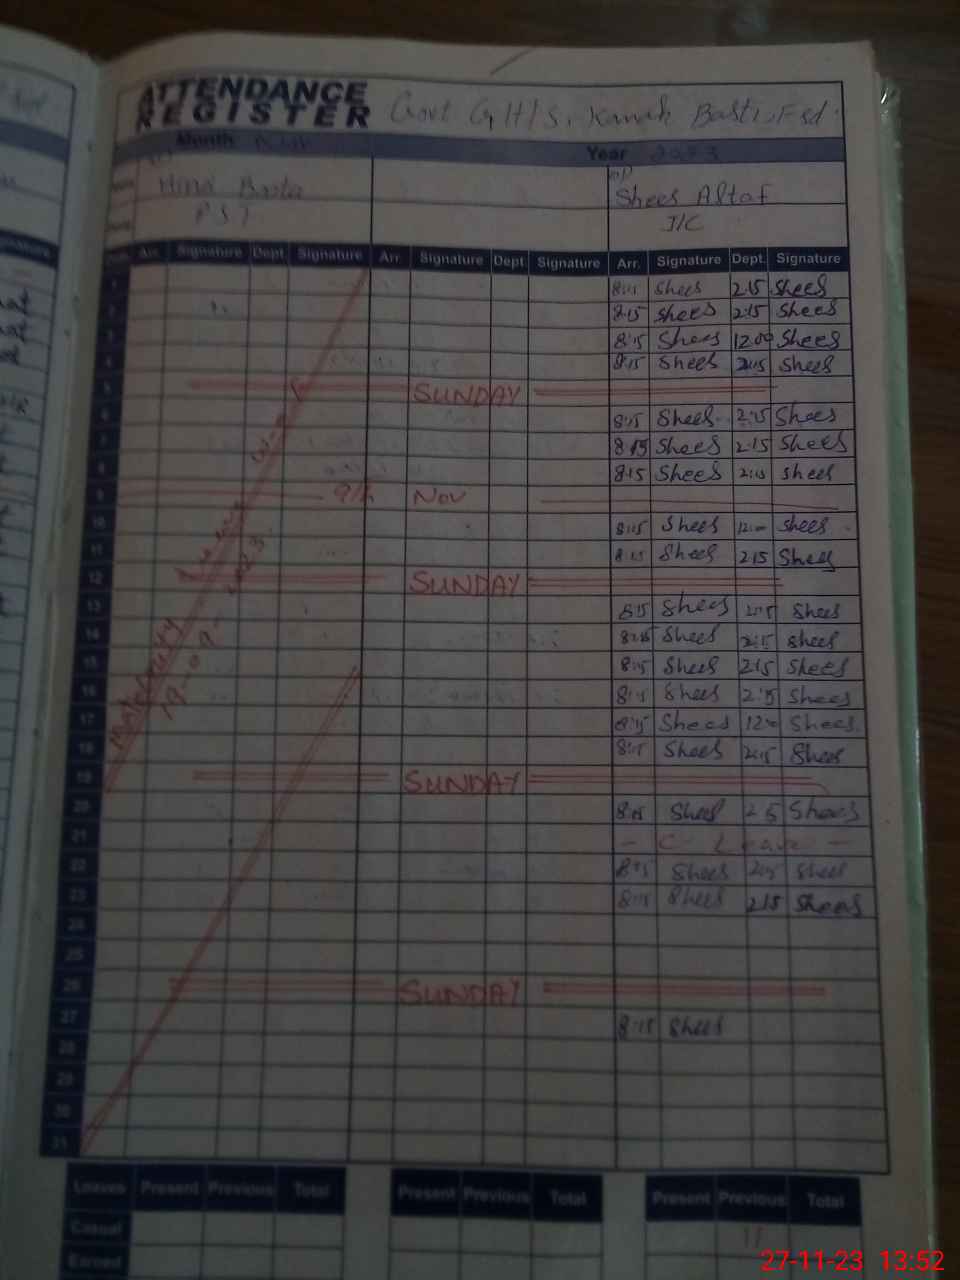 ATTENDANCE
REGISTER Govt G.H/S. Kanak Basti, Fsd.
Month Year 2023
Hina
P.S.T
Shees Altaf
I/C
Arr. Signature Dept. Signature Arr. Signature Dept. Signature Arr. Signature Dept. Signature
1 8:15 Shees 2:15 Shees
2 8:15 Shees 2:15 Shees
3 8:15 Shees 12:00 Shees
4 8:15 Shees 2:15 Shees
5 SUNDAY
6 8:15 Shees 2:15 Shees
7 8:15 Shees 2:15 Shees
8 8:15 Shees 2:15 Shees
9 9th Nov
10 8:15 Shees 12:00 Shees
11 8:15 Shees 2:15 Shees
12 SUNDAY
13 8:15 Shees 2:15 Shees
14 8:15 Shees 2:15 Shees
15 8:15 Shees 2:15 Shees
16 8:15 Shees 2:15 Shees
17 8:15 Shees 12:00 Shees
18 8:15 Shees 2:15 Shees
19 SUNDAY
20 8:15 Shees 2:15 Shees
21 - C- Leave -
22 8:15 Shees 2:15 Shees
23 8:15 Shees 2:15 Shees
24
25
26 SUNDAY
27 8:15 Shees
28
29
30
31
Maternity Leave w.e.f
19-09-2023
Leaves Present Previous Total Present Previous Total Present Previous Total
Casual 11
Earned
27-11-23 13:52